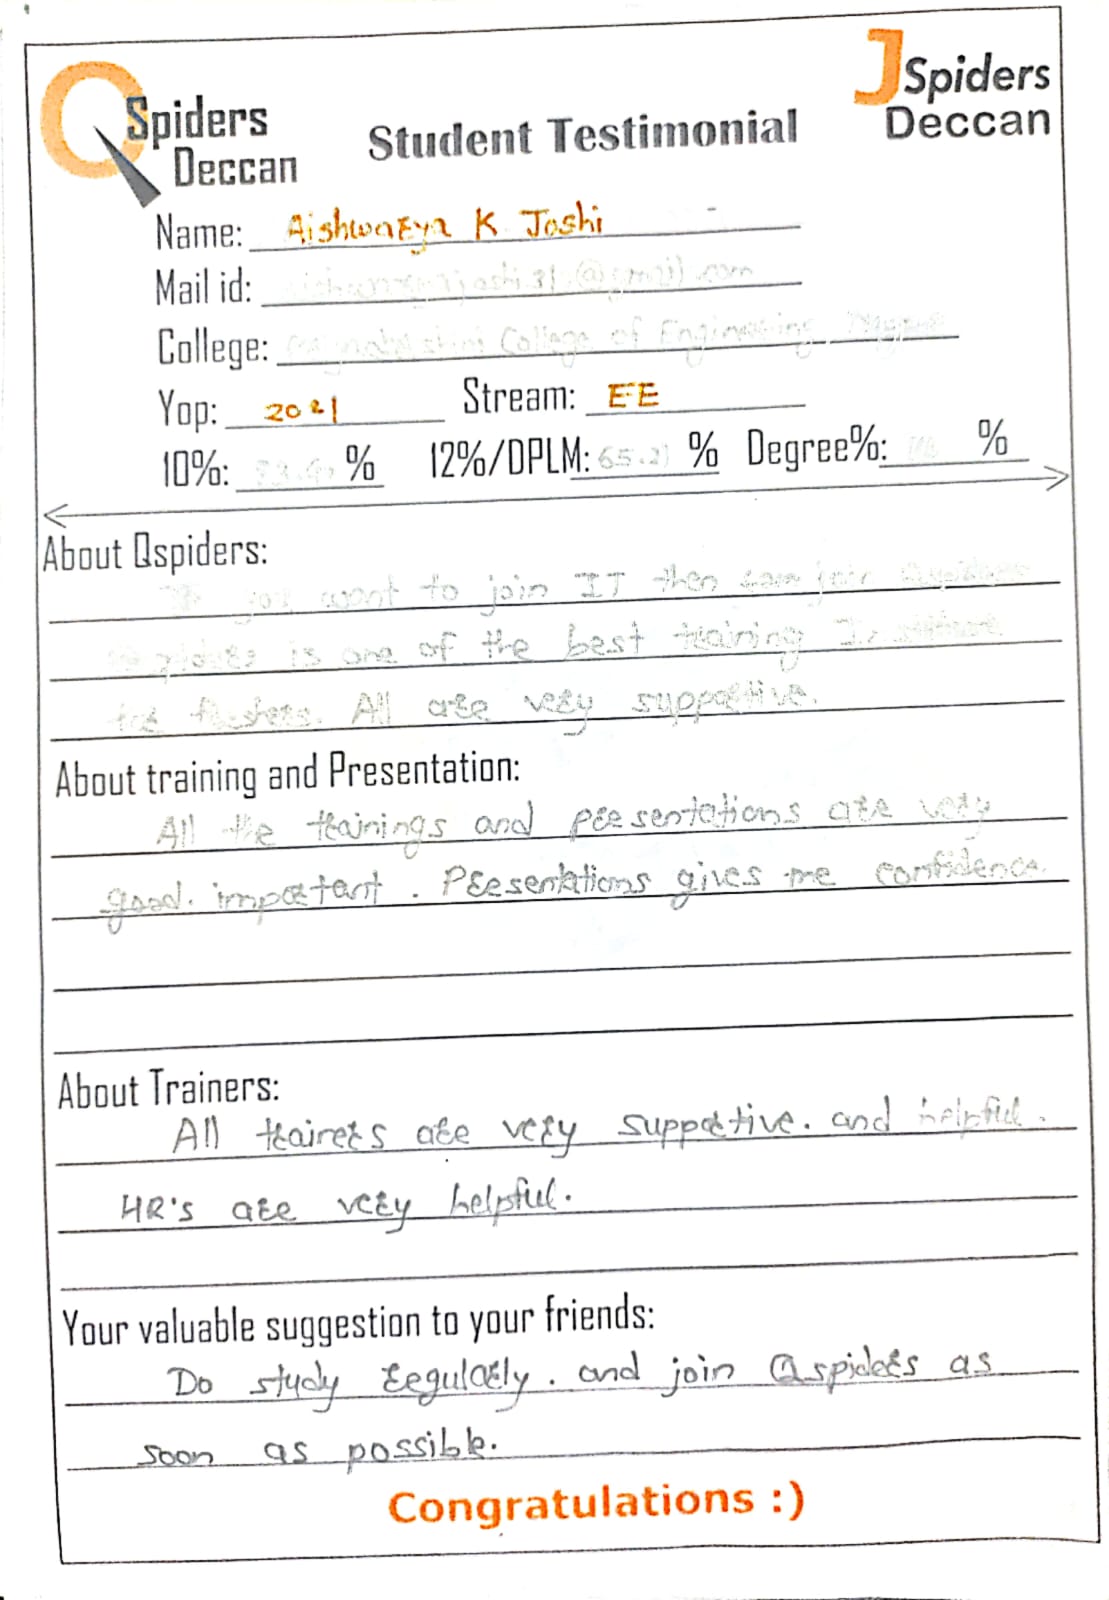 QSpiders
Deccan
Student Testimonial
JSpiders
Deccan
Name: Aishwarya K Joshi
Mail id: @gmail.com
College: College of Engineering,
Yop: 2021 Stream: EE
10%: % 12%/DPLM: 65.21 % Degree%: %
About Qspiders:
If you want to join IT then can join Qspiders
Qspiders is one of the best training
for freshers. All are very supportive.
About training and Presentation:
All the trainings and presentations are very
good. important. Presentations gives me confidence.
About Trainers:
All trainers are very supportive. and helpful.
HR's are very helpful.
Your valuable suggestion to your friends:
Do study regularly. and join Qspiders as
soon as possible.
Congratulations :)